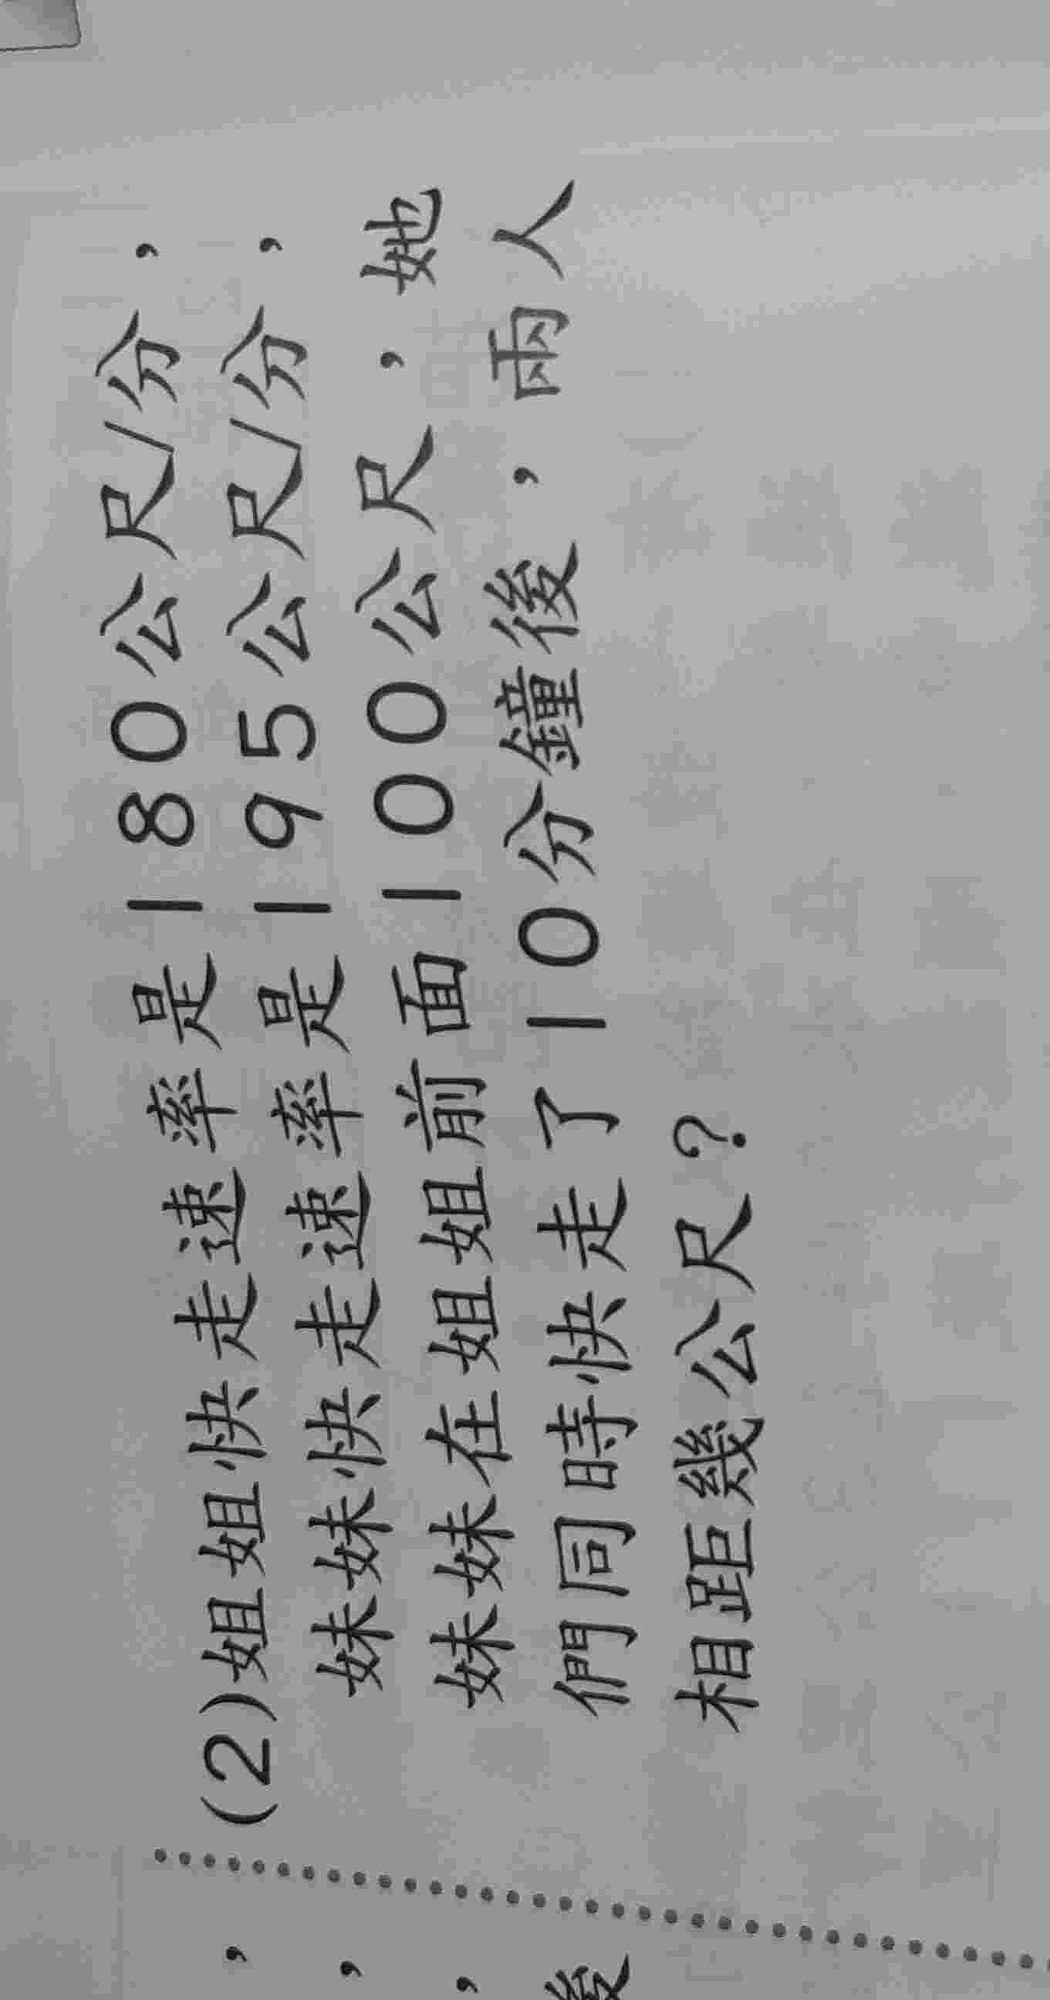 (2)姐姐快走速率是180公尺/分，
妹妹快走速率是195公尺/分，
妹妹在姐姐前面100公尺，她
們同時快走了10分鐘後，兩人
相距幾公尺？
，
，
，
後